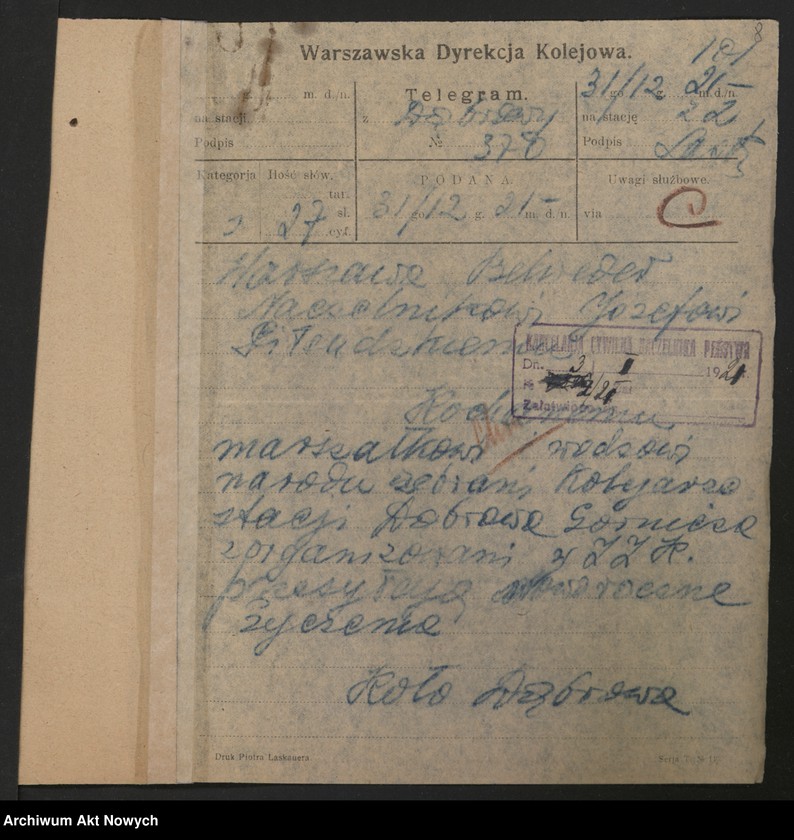 8
Warszawska Dyrekcja Kolejowa.
101
m. d./n.
Telegram.
31/12 go g. 21 – m. d./n.
na stacji
z Dąbrowy
na stację 22
Podpis
№ 378
Podpis
Kategorja
Ilość słów.
PODANA.
Uwagi służbowe.
tar.
27 sł.
31/12 go g. 21 – m. d. n.
via C
cyf.
Warszawa Belweder
Naczelnikowi Józefowi
Piłsudzkiemu
KANCELARJA CYWILNA NACZELNIKA PAŃSTWA
Dn. 3 I 1921
№
Załatwiono
Kochanemu
marszałkowi i wodzowi
narodu zebrani Kolejarze
stacji Dąbrowa Górnicza
zorganizowani w ZZK.
przesyłają noworoczne
życzenia
Koło Dąbrowa
Druk Piotra Laskauera
Archiwum Akt Nowych